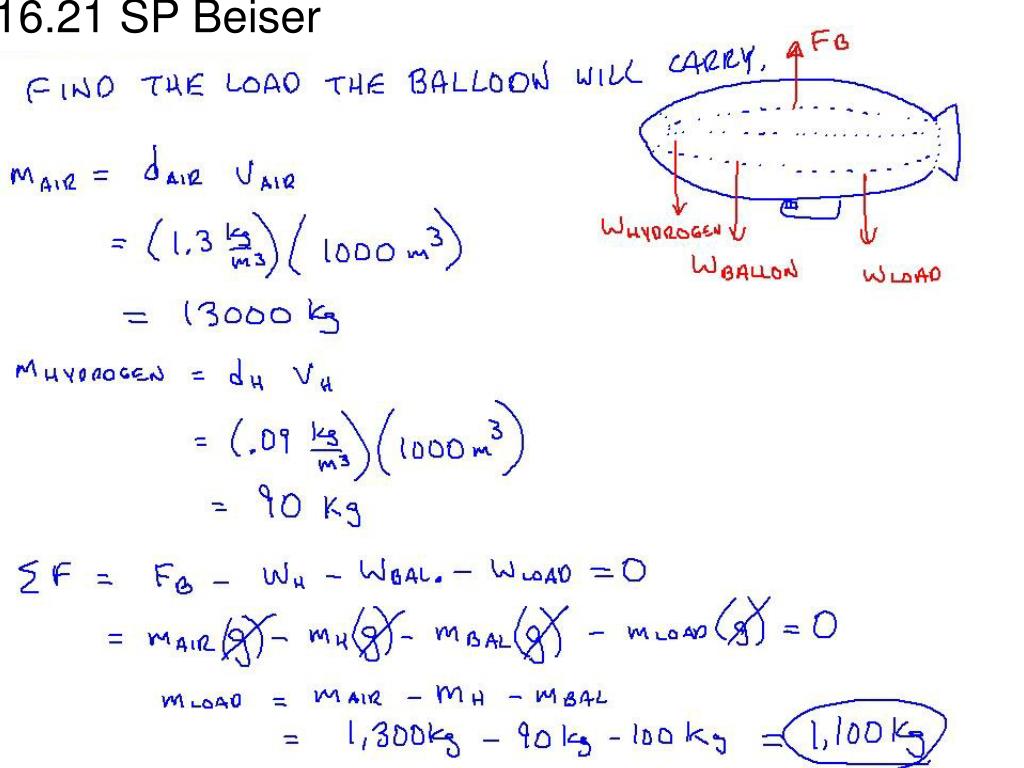 16.21 SP Beiser
FIND THE LOAD THE BALLOON WILL CARRY.
F_B
W_HYDROGEN
W_BALLON
W_LOAD
m_AIR = d_AIR V_AIR
= (1.3 kg/m³)(1000 m³)
= 13000 kg
m_HYDROGEN = d_H V_H
= (.09 kg/m³)(1000 m³)
= 90 kg
ΣF = F_B - W_H - W_BAL. - W_LOAD = 0
= m_AIR(g) - m_H(g) - m_BAL(g) - m_LOAD(g) = 0
m_LOAD = m_AIR - m_H - m_BAL
= 1,300kg - 90 kg - 100 kg = 1,100 kg